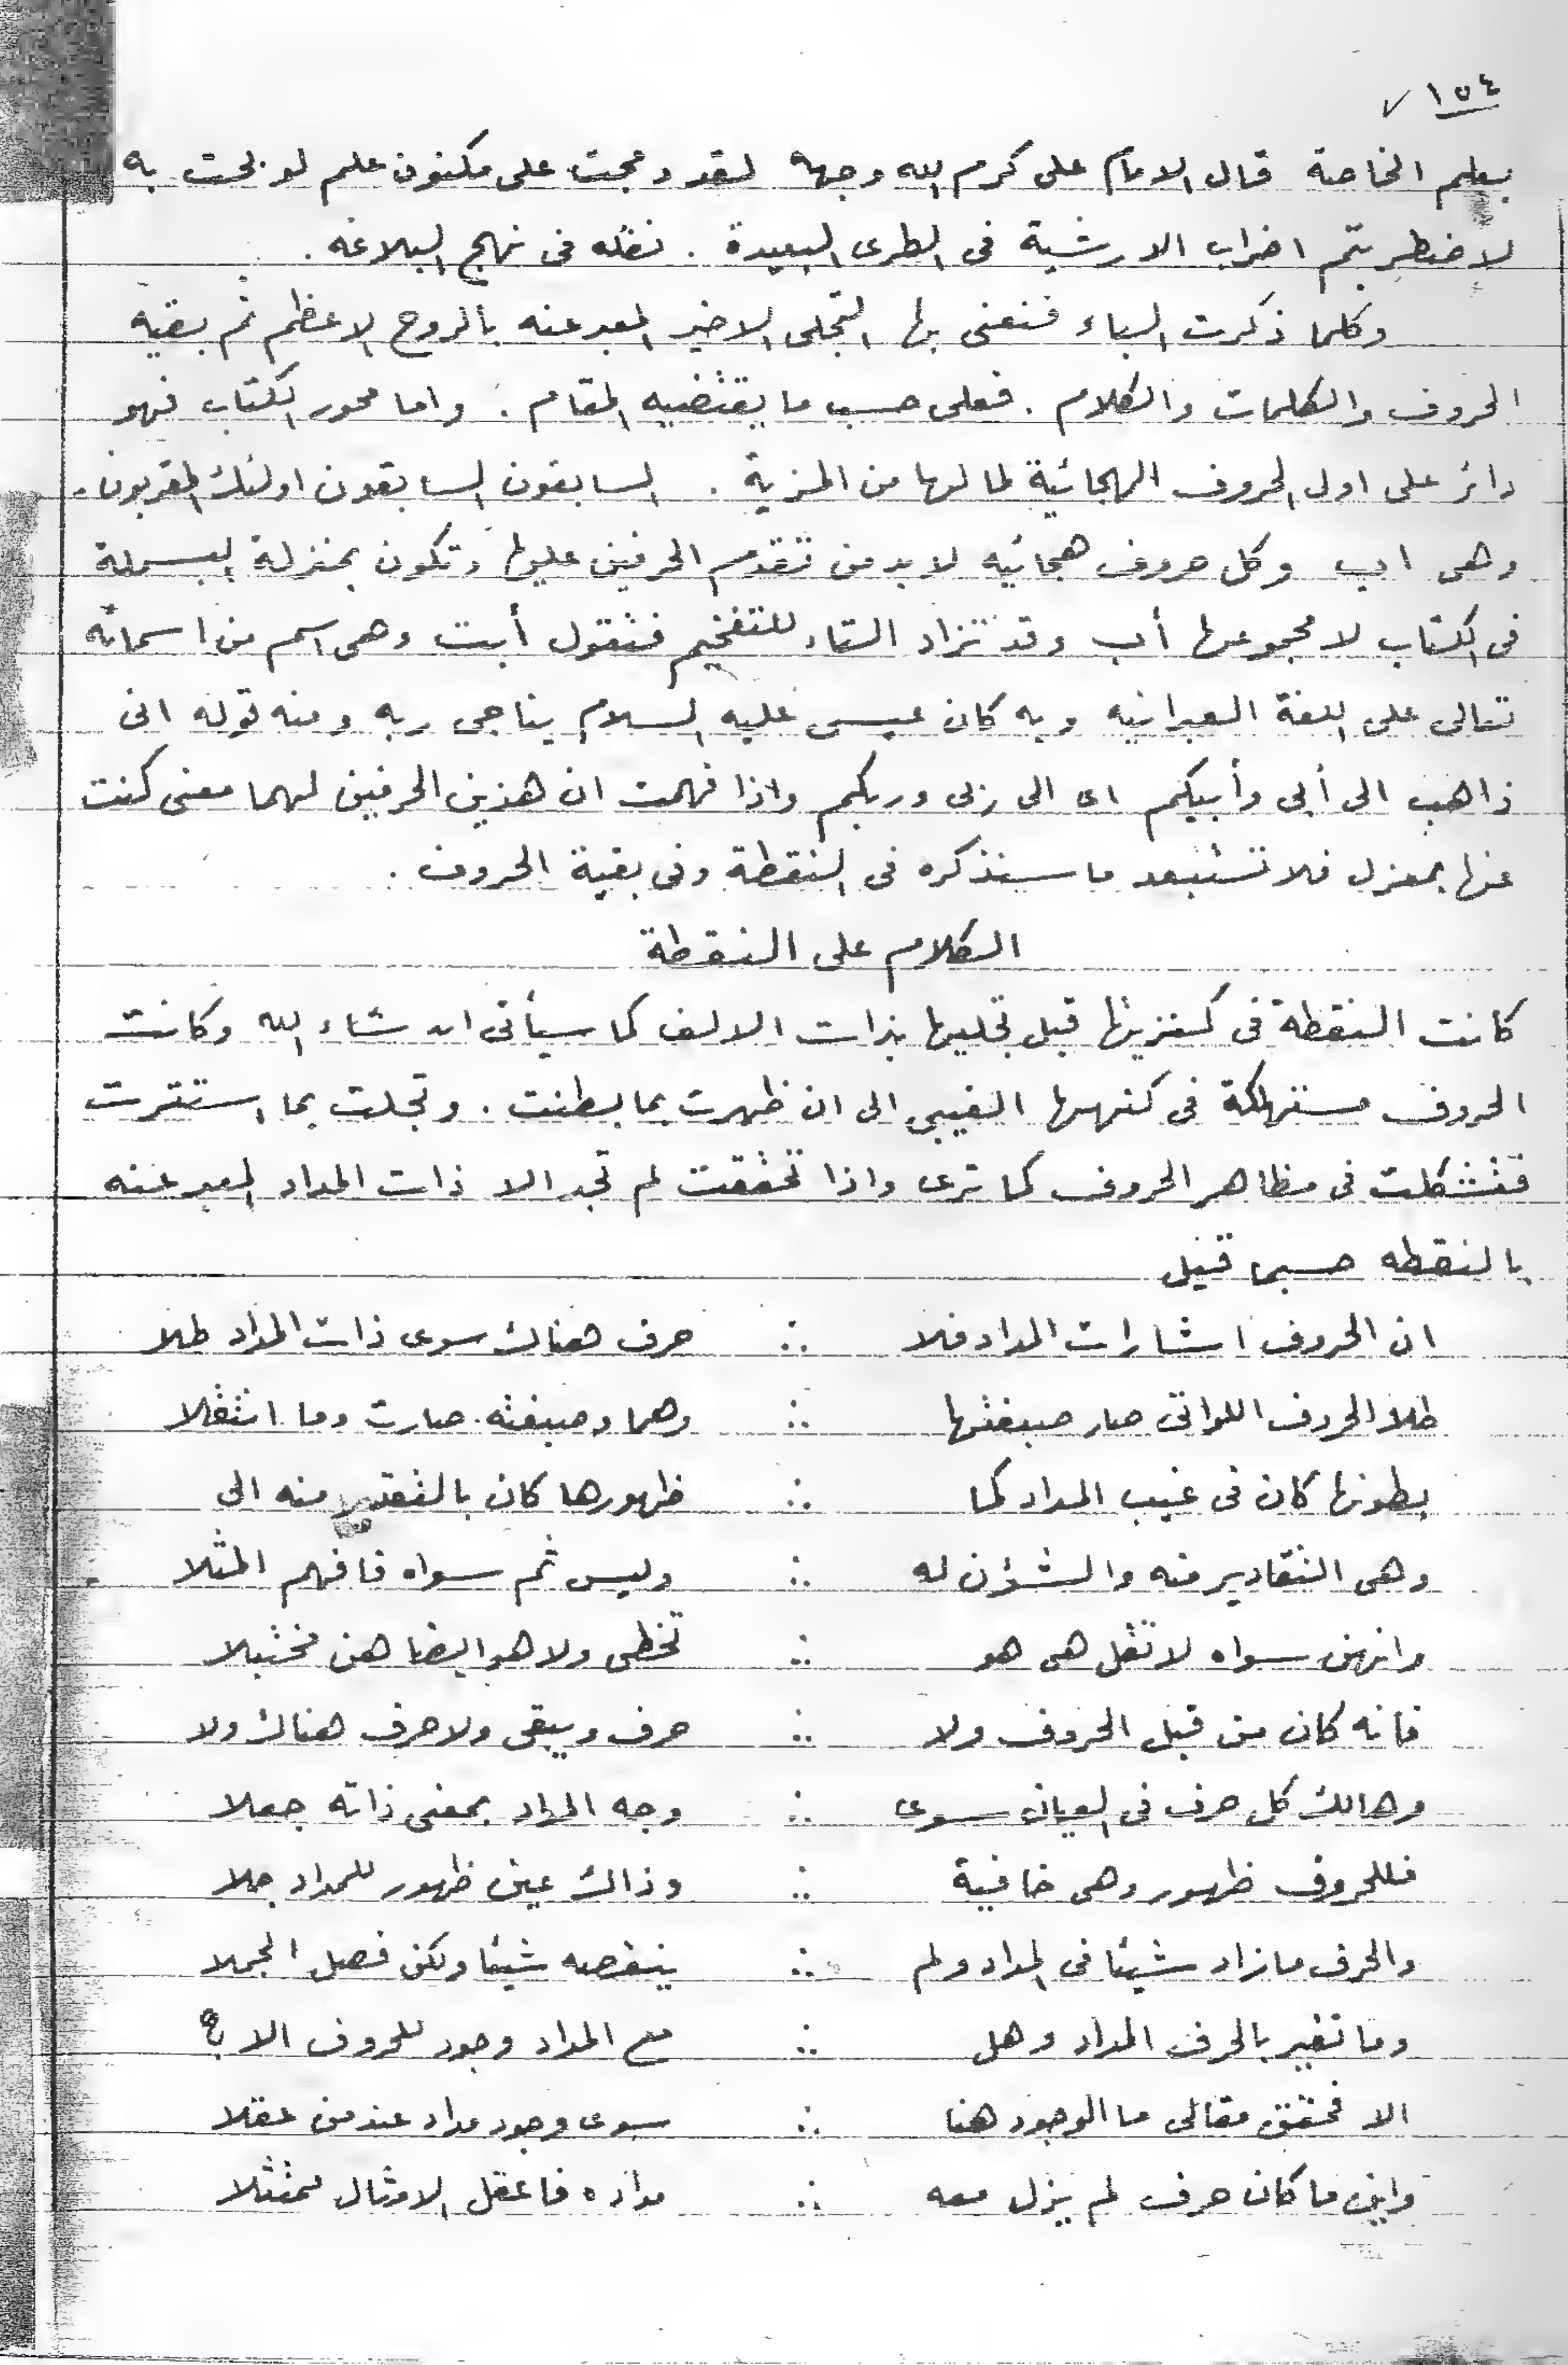 ١٥٤
بعلم الخاصة قال الامام على كرم الله وجهه لقد دمجت على مكنون علم لو بحت به
لاضطربتم اضراب الارشية فى الطوى البعيدة . نقله فى نهج البلاغه .
وكلما ذكرت الباء فنعنى بها التجلى الاخير المعبر عنه بالروح الاعظم ثم بقية
الحروف والكلمات والكلام . فعلى حسب ما يقتضيه المقام . واما محور الكتاب فهو
دائر على اول الحروف الهجائية لما لها من المزية . السابقون السابقون اولئك المقربون .
وهى اب وكل حروف هجائيه لابد من تقدم الحرفين عليها وتكون بمنزلة البسملة
فى الكتاب لا مجموعها أب وقد تزاد التاء للتفخيم فنقول أبت وهى اسم من اسمائه
تعالى على اللغة العبرانيه وبه كان عيسى عليه السلام يناجى ربه ومنه قوله انى
ذاهب الى أبى وأبيكم اى الى ربى وربكم واذا فهمت ان هذين الحرفين لهما معنى كنت
عنها بمعزل فلا تستبعد ما سنذكره فى النقطة وفى بقية الحروف .
الكلام على النقطة
كانت النقطة فى كنزيتها قبل تجليها بذات الالف كما سيأتى ان شاء الله وكانت
الحروف مستهلكة فى كنهها الغيبى الى ان ظهرت بما بطنت . وتجلت بما استترت
فتشكلت فى مظاهر الحروف كما ترى واذا تحققت لم تجد الا ذات المداد المعبر عنه
بالنقطه حسبما قيل
ان الحروف اشارات المداد فلا ∴ حرف هناك سوى ذات المداد طلا
طلا الحروف اللواتى صار صبغتها ∴ وهما وصبغته صارت وما انتقلا
بطونها كان فى غيب المداد كما ∴ ظهورها كان بالتقدير منه الى
وهى التقادير منه والشؤن له ∴ وليس ثم سواه فافهم المثلا
وانهن سواه لا تقل هى هو ∴ تخطى ولا هو ايضا هن مختبلا
فانه كان من قبل الحروف ولا ∴ حرف ويبقى ولا حرف هناك ولا
وهالك كل حرف فى العيان سوى ∴ وجه المداد بمعنى ذاته جعلا
فللحروف ظهور وهى خافية ∴ وذاك عين ظهور للمداد جلا
والحرف ما زاد شيئا فى المداد ولم ∴ ينقصه شيئا ولكن فصل الجملا
وما تغير بالحرف المداد وهل ∴ مع المداد وجود للحروف الا ؟
الا فحقق مقالى ما الوجود هنا ∴ سوى وجود مداد عند من عقلا
واين ما كان حرف لم يزل معه ∴ مداده فاعقل الامثال ممتثلا